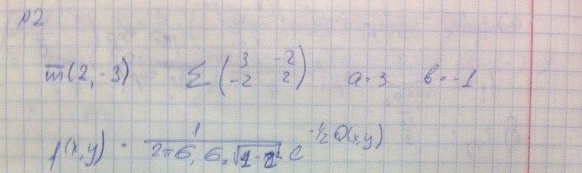 №2
m̅(2, -3)  Σ(3 -2
-2 2)  a=3  b=-1
f(x,y) = 1/(2πσ₁σ₂√(1-r²)) e^(-1/2 Q(x,y))